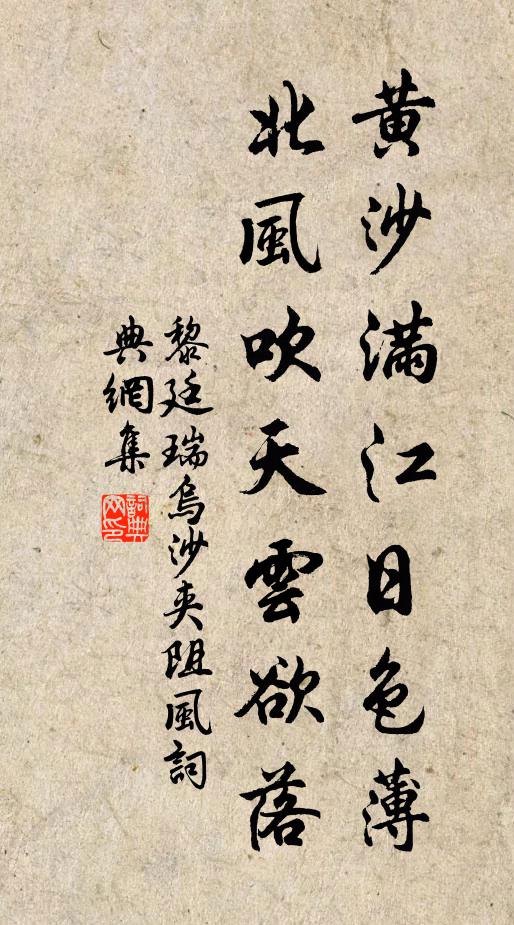 黄沙滿江日色薄
北風吹天雲欲落
黎廷瑞烏沙夾阻風詞
典網集
詞典網印